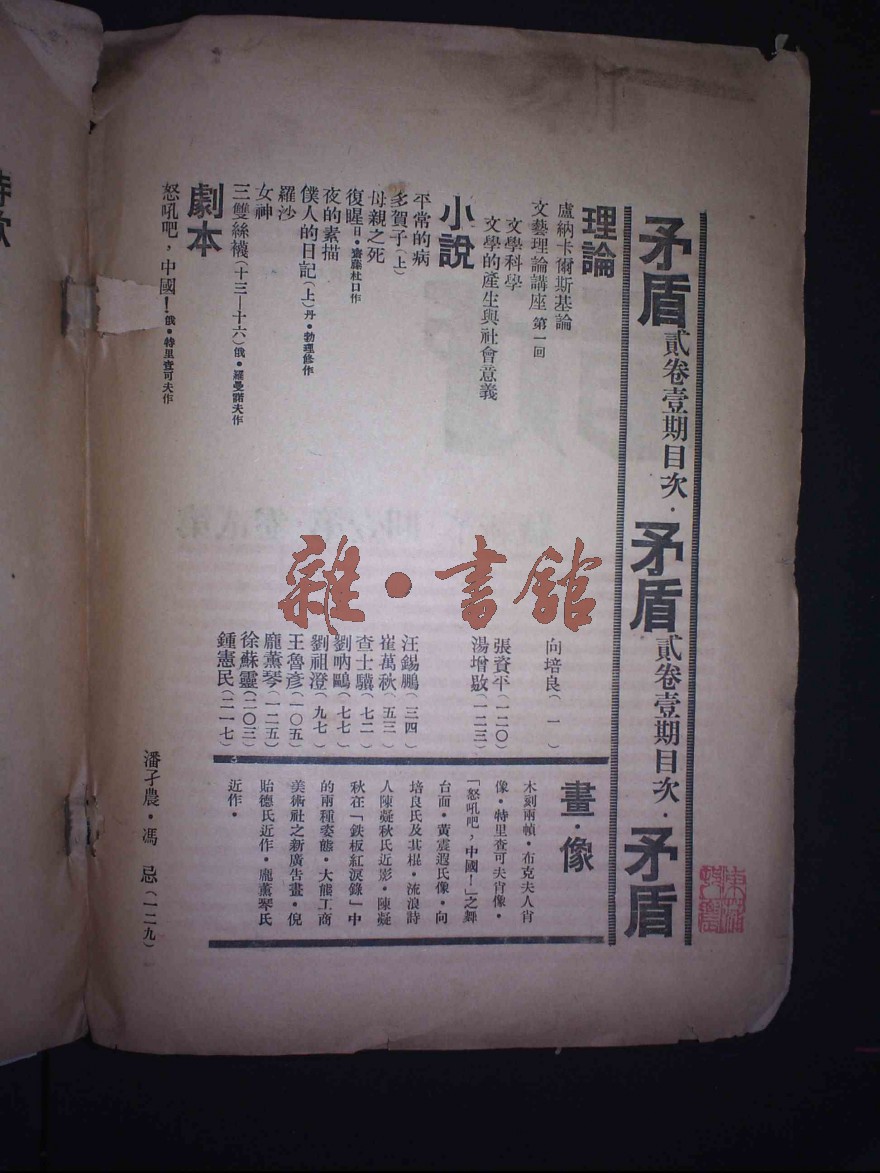 矛盾貳卷壹期目次·矛盾貳卷壹期目次·矛盾
理論
盧納卡爾斯基論 向培良(一)
文藝理論講座 第一回
文學科學 張資平(一二〇)
文學的產生與社會意義 湯增敭(一二三)
小說
平常的病 汪錫鵬(三四)
多賀子(上) 崔萬秋(五三)
母親之死 查士驥(七二)
復暒日·齋藤杜口作 劉吶鷗(七七)
夜的素描 劉祖澄(九七)
僕人的日記(上)丹·勃理修作 王魯彥(一〇五)
羅沙 龐薰琴(一二五)
女神 徐蘇靈(二〇三)
三雙絲襪(十三—十六)俄·羅曼諾夫作 鍾憲民(二一七)
劇本
怒吼吧,中國!俄·特里查可夫作 潘孑農·馮忌(一二九)
畫·像
木刻兩幀·布克夫人肖
像·特里查可夫肖像·
「怒吼吧,中國!」之舞
台面·黃震遐氏像·向
培良氏及其棍·流浪詩
人陳凝秋氏近影·陳凝
秋在「鉄板紅淚錄」中
的兩種姿態·大熊工商
美術社之新廣告畫·倪
貽德氏近作·龐薰琴氏
近作·
雜·書館